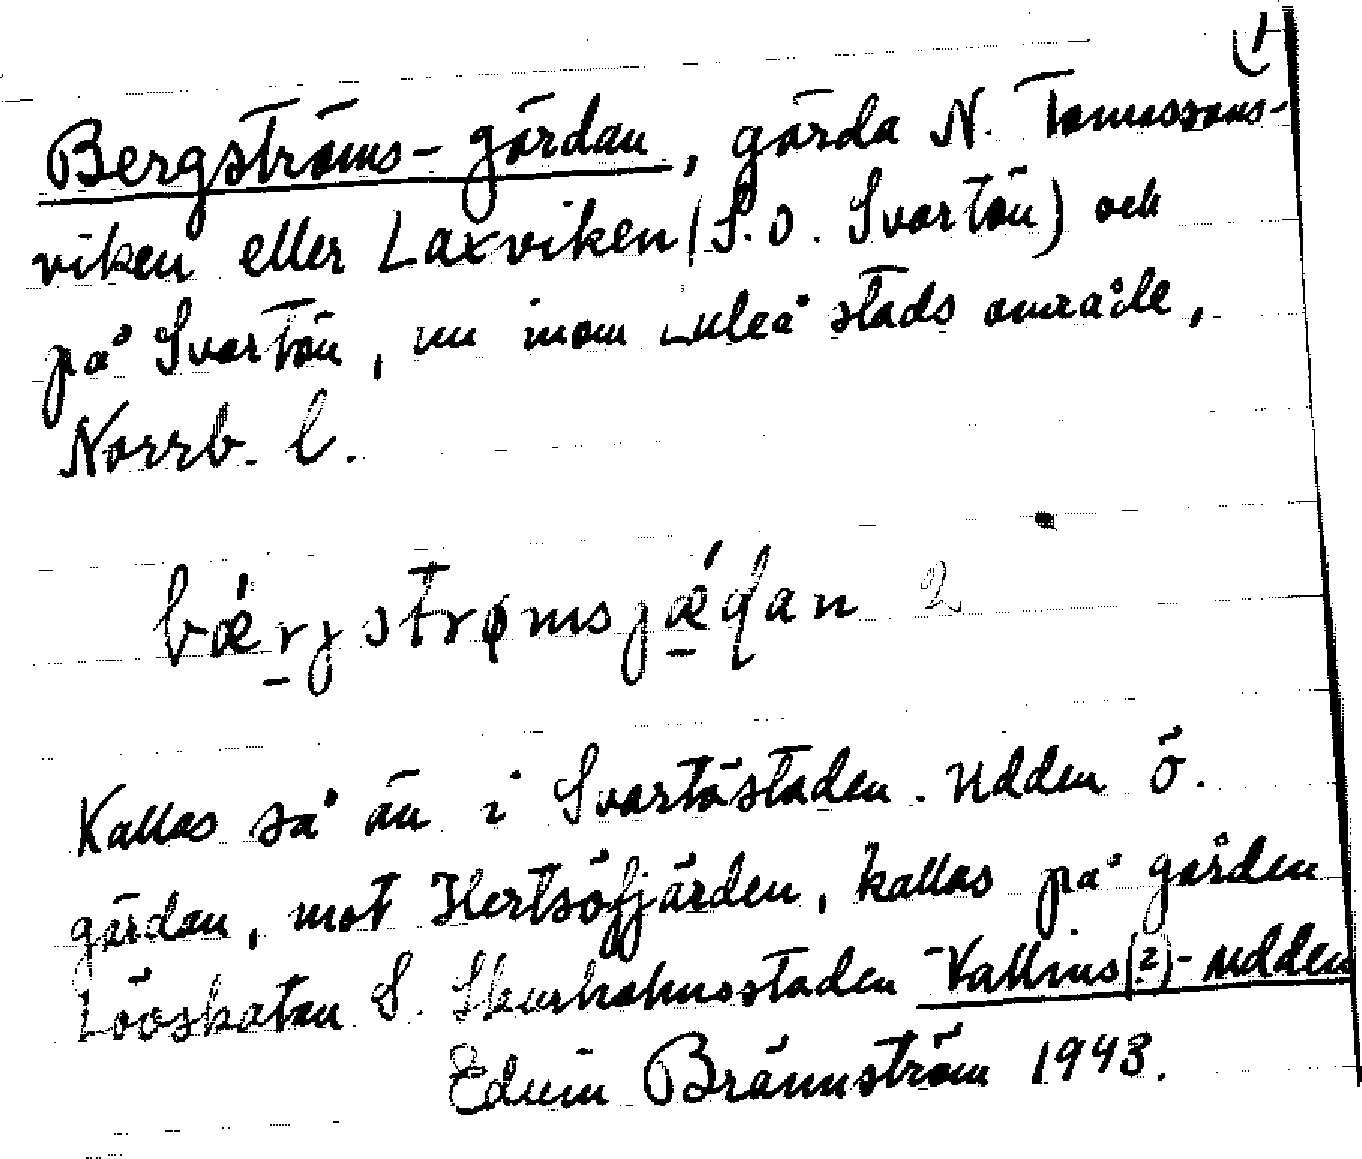 1)
Bergströms-gärdan, gärda N. Tomassons-
viken eller Laxviken (S.O. Svartön) och
på Svartön, nu inom Luleå stads område,
Norrb. l.
bǽrjstrømsjǽḍan 2
Kallas så än i Svartöstaden. Udden ö.
gärdan, mot Hertsöfjärden, kallas på gården
Lööskatan S. Skurholmsstaden Vallins(?)-udden
Edvin Brännström 1943.